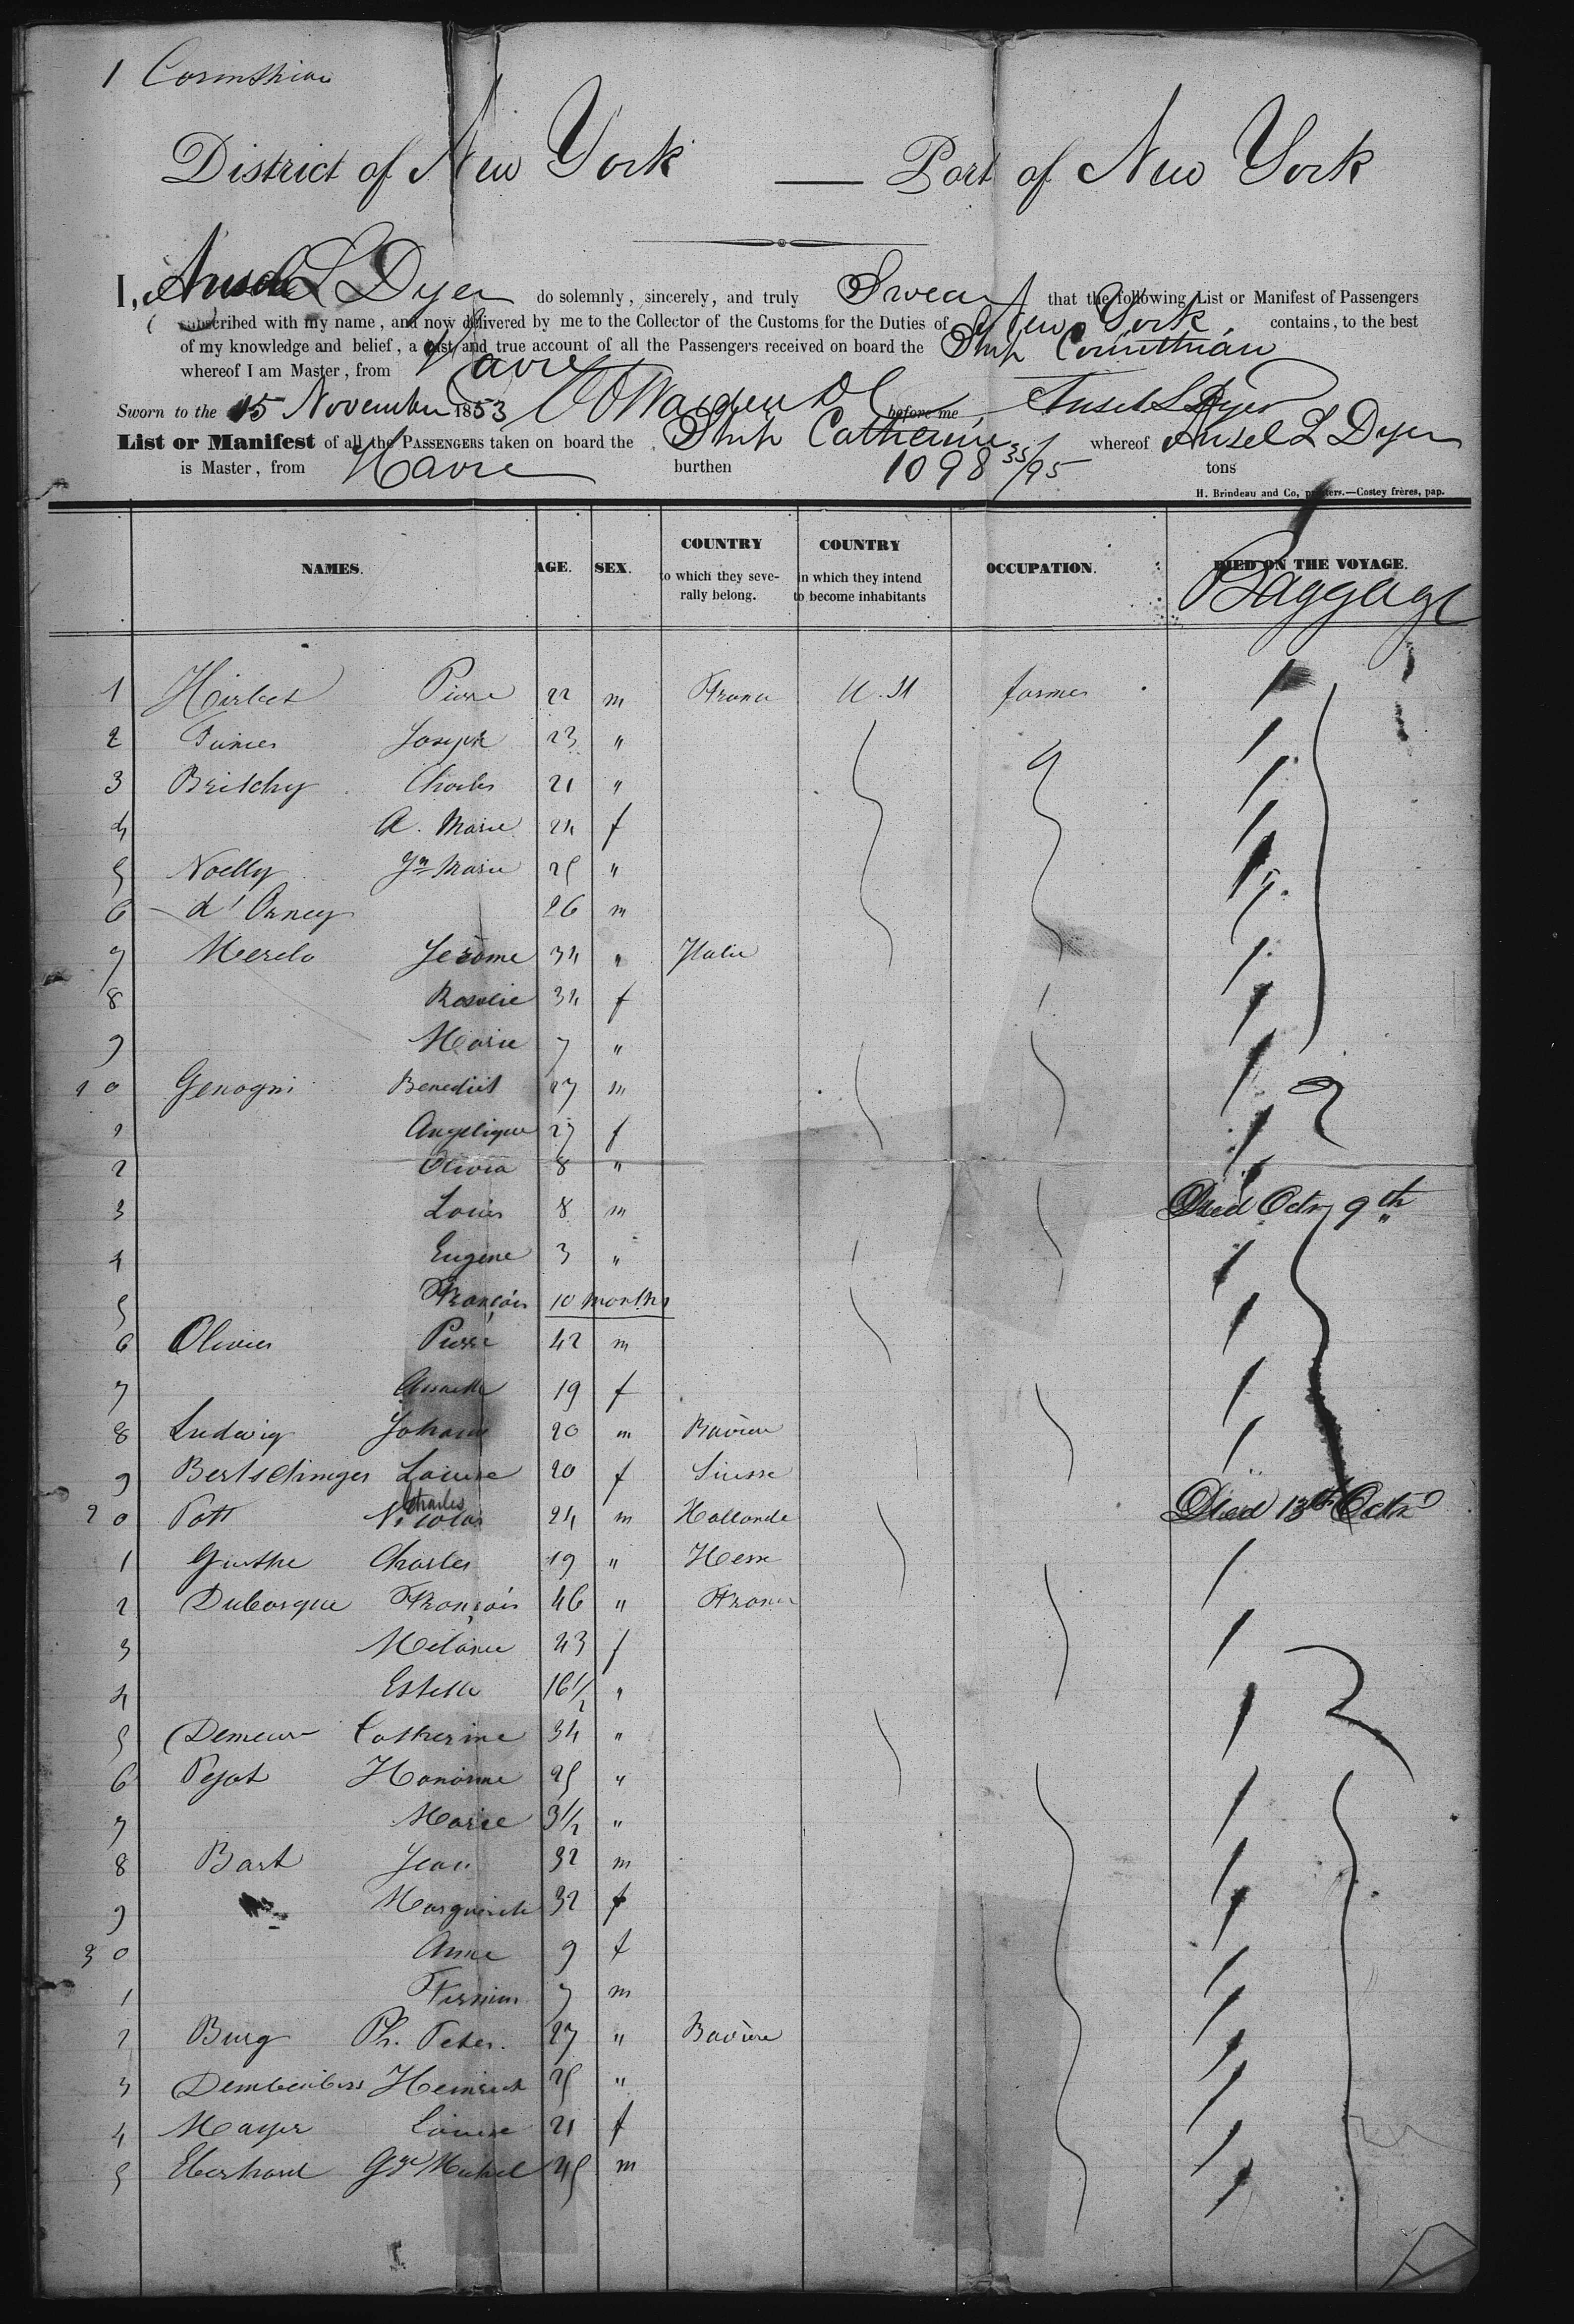 1 Corinthian
District of New York — Port of New York
I, Ansel L Dyer do solemnly, sincerely, and truly Swear that the following List or Manifest of Passengers
subscribed with my name, and now delivered by me to the Collector of the Customs for the Duties of New York contains, to the best
of my knowledge and belief, a just and true account of all the Passengers received on board the Ship Corinthian
whereof I am Master, from Havre
Sworn to the 15 November 1853 before me, Ansel L Dyer
List or Manifest of all the PASSENGERS taken on board the Ship whereof Ansel L Dyer
is Master, from Havre burthen 1098 35/95 tons
H. Brindeau and Co, printers.—Costey frères, pap.
NAMES. AGE. SEX. COUNTRY to which they seve-rally belong. COUNTRY in which they intend to become inhabitants OCCUPATION. DIED ON THE VOYAGE.
Baggage
1 Pierre 22 m France U. St farmer
2 Joseph 23 "
3 Britchy Charles 21 "
4 A. Marie 24 f
5 Noelly Jn Marie 25 "
6 d'Orney 26 m
7 Merelo Jerôme 34 " Italie
8 Rosalie 34 f
9 Marie 7 "
10 Genogni Benedict 27 m
1 Angelique 27 f
2 Olivia 8 "
3 Louis 8 m Died Octr 9th
4 Eugene 3 "
5 François 10 months
6 Olivier Pierre 42 m
7 Annette 19 f
8 Ludwig Johann 20 m Bavière
9 Bertschinger Louise 20 f Suisse
20 Pott Charles Nicolas 24 m Hollande Died 13th Octr
1 Guthe Charles 19 " Hesse
2 Duborque François 46 " France
3 Melanie 43 f
4 Estelle 16 1/2 "
5 Demeur Catherine 34 "
6 Pejot Honorine 25 "
7 Marie 3 1/2 "
8 Bart Jean 32 m
9 Marguerite 32 f
30 Anne 9 f
1 Firmin 7 m
2 Burg Ph. Peter. 27 " Bavière
3 Heinrich 25 "
4 Mayer Louise 21 f
5 Eberhard Gge Michel 45 m